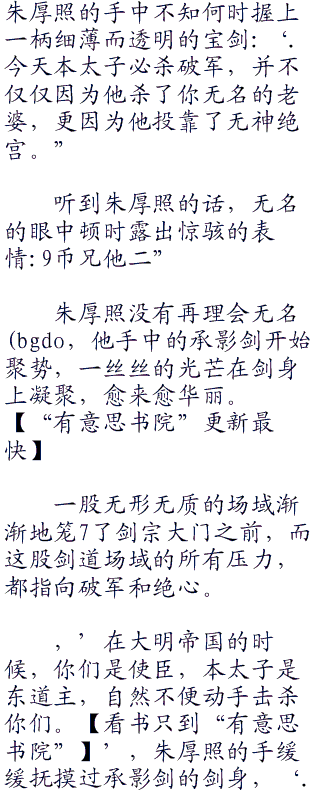 朱厚照的手中不知何时握上
一柄细薄而透明的宝剑:‘.
今天本太子必杀破军，并不
仅仅因为他杀了你无名的老
婆，更因为他投靠了无神绝
宫。”
听到朱厚照的话，无名
的眼中顿时露出惊骇的表
情:9币兄他二”
朱厚照没有再理会无名
(bgdo，他手中的承影剑开始
聚势，一丝丝的光芒在剑身
上凝聚，愈来愈华丽。
【“有意思书院”更新最
快】
一股无形无质的场域渐
渐地笼7了剑宗大门之前，而
这股剑道场域的所有压力，
都指向破军和绝心。
，’在大明帝国的时
候，你们是使臣，本太子是
东道主，自然不便动手击杀
你们。【看书只到“有意思
书院”】’，朱厚照的手缓
缓抚摸过承影剑的剑身，‘.